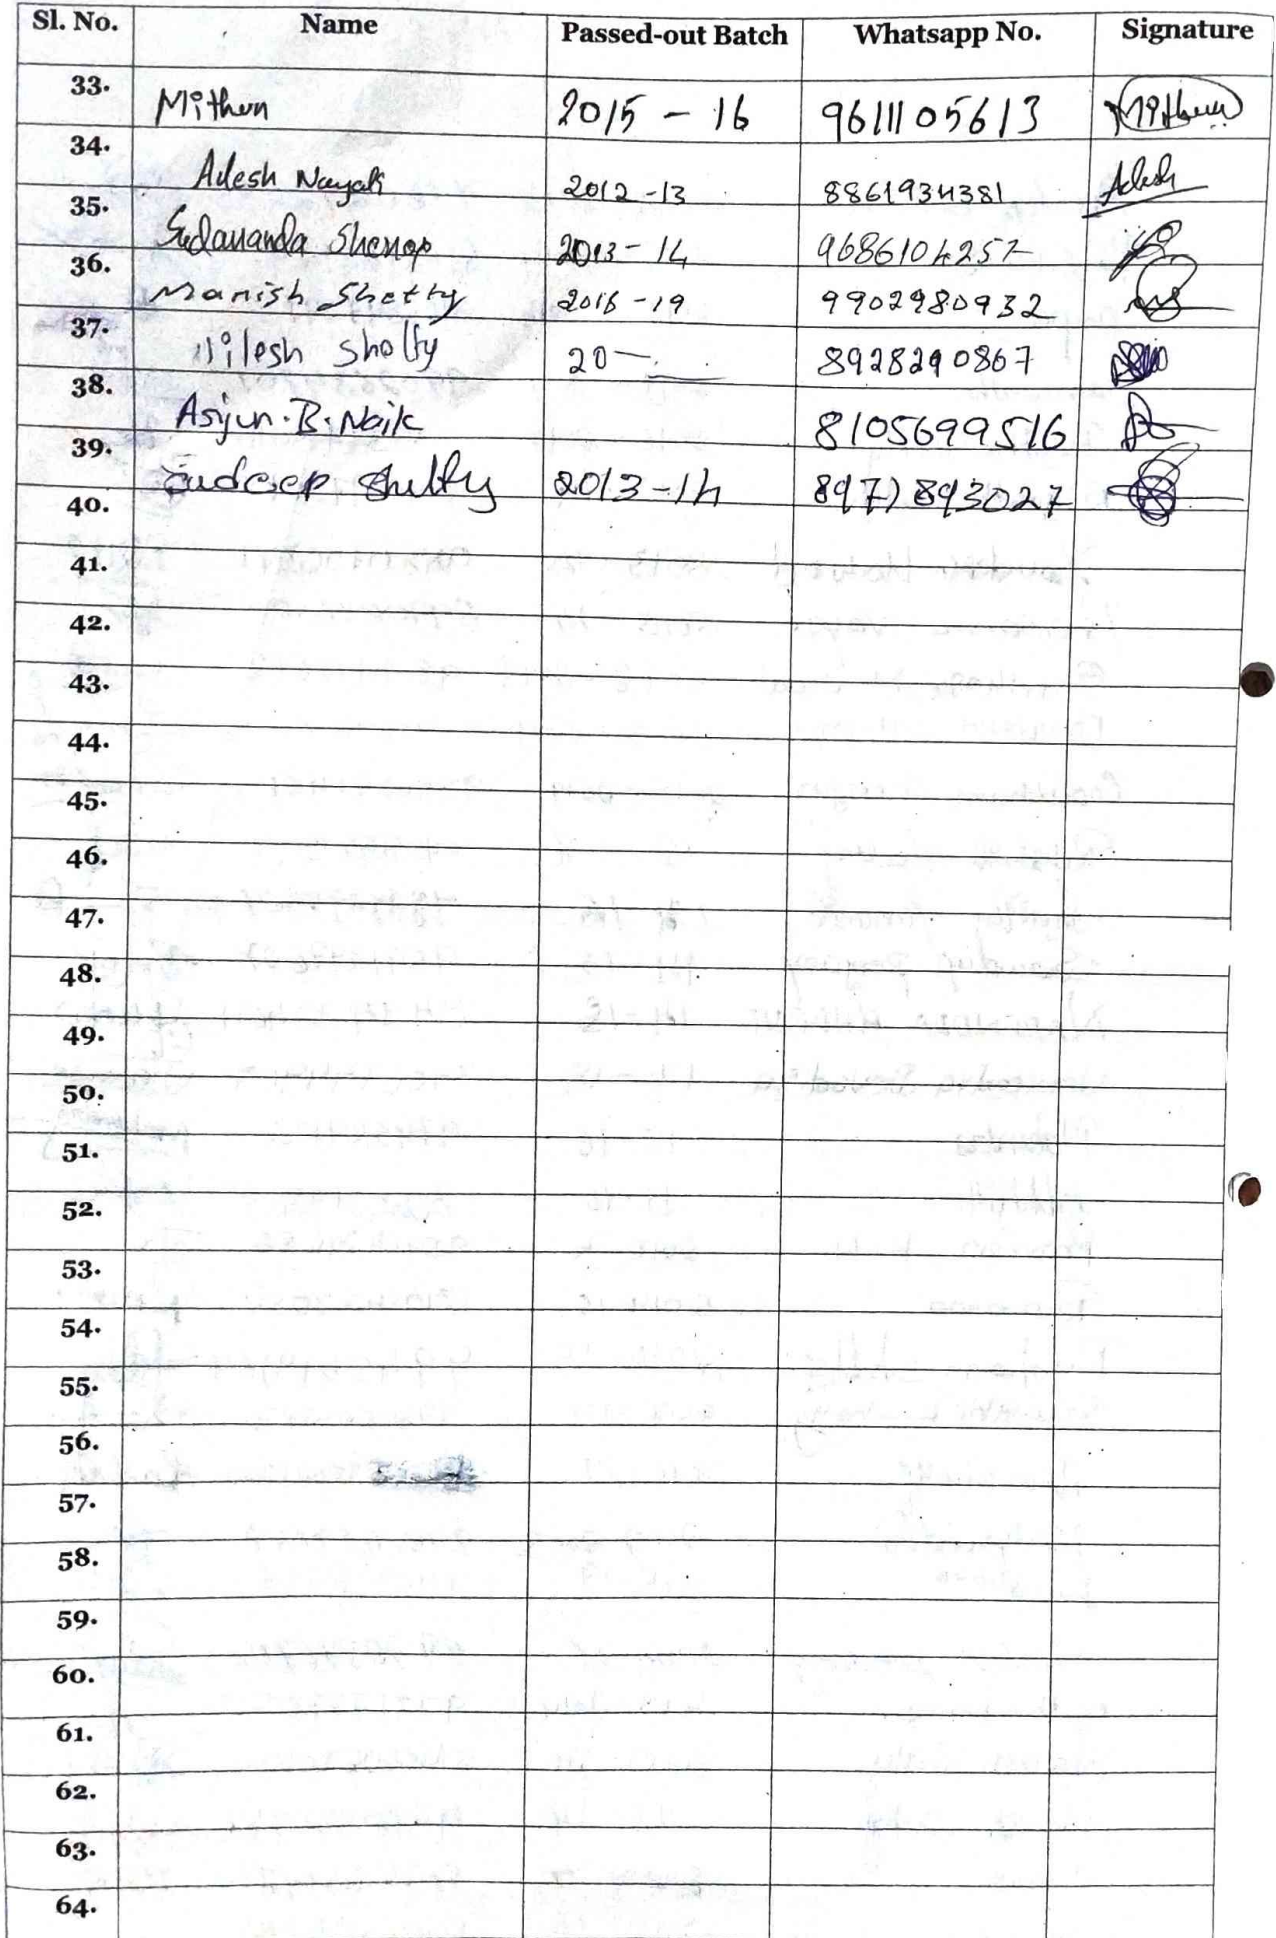 Sl. No. Name Passed-out Batch Whatsapp No. Signature
33. Mithun 2015 - 16 9611105613 Mithun
34. Adesh Nayak 2012 -13 8861934381 Adesh
35. Sadananda Shenoy 2013 - 14 9686104257
36. Manish Shetty 2016 -19 9902980932
37. shetty 20 8928290867
38. Arjun.B.Naik 8105699516
39. Sudeep Shetty 2013-14 8971893027
40.
41.
42.
43.
44.
45.
46.
47.
48.
49.
50.
51.
52.
53.
54.
55.
56.
57.
58.
59.
60.
61.
62.
63.
64.